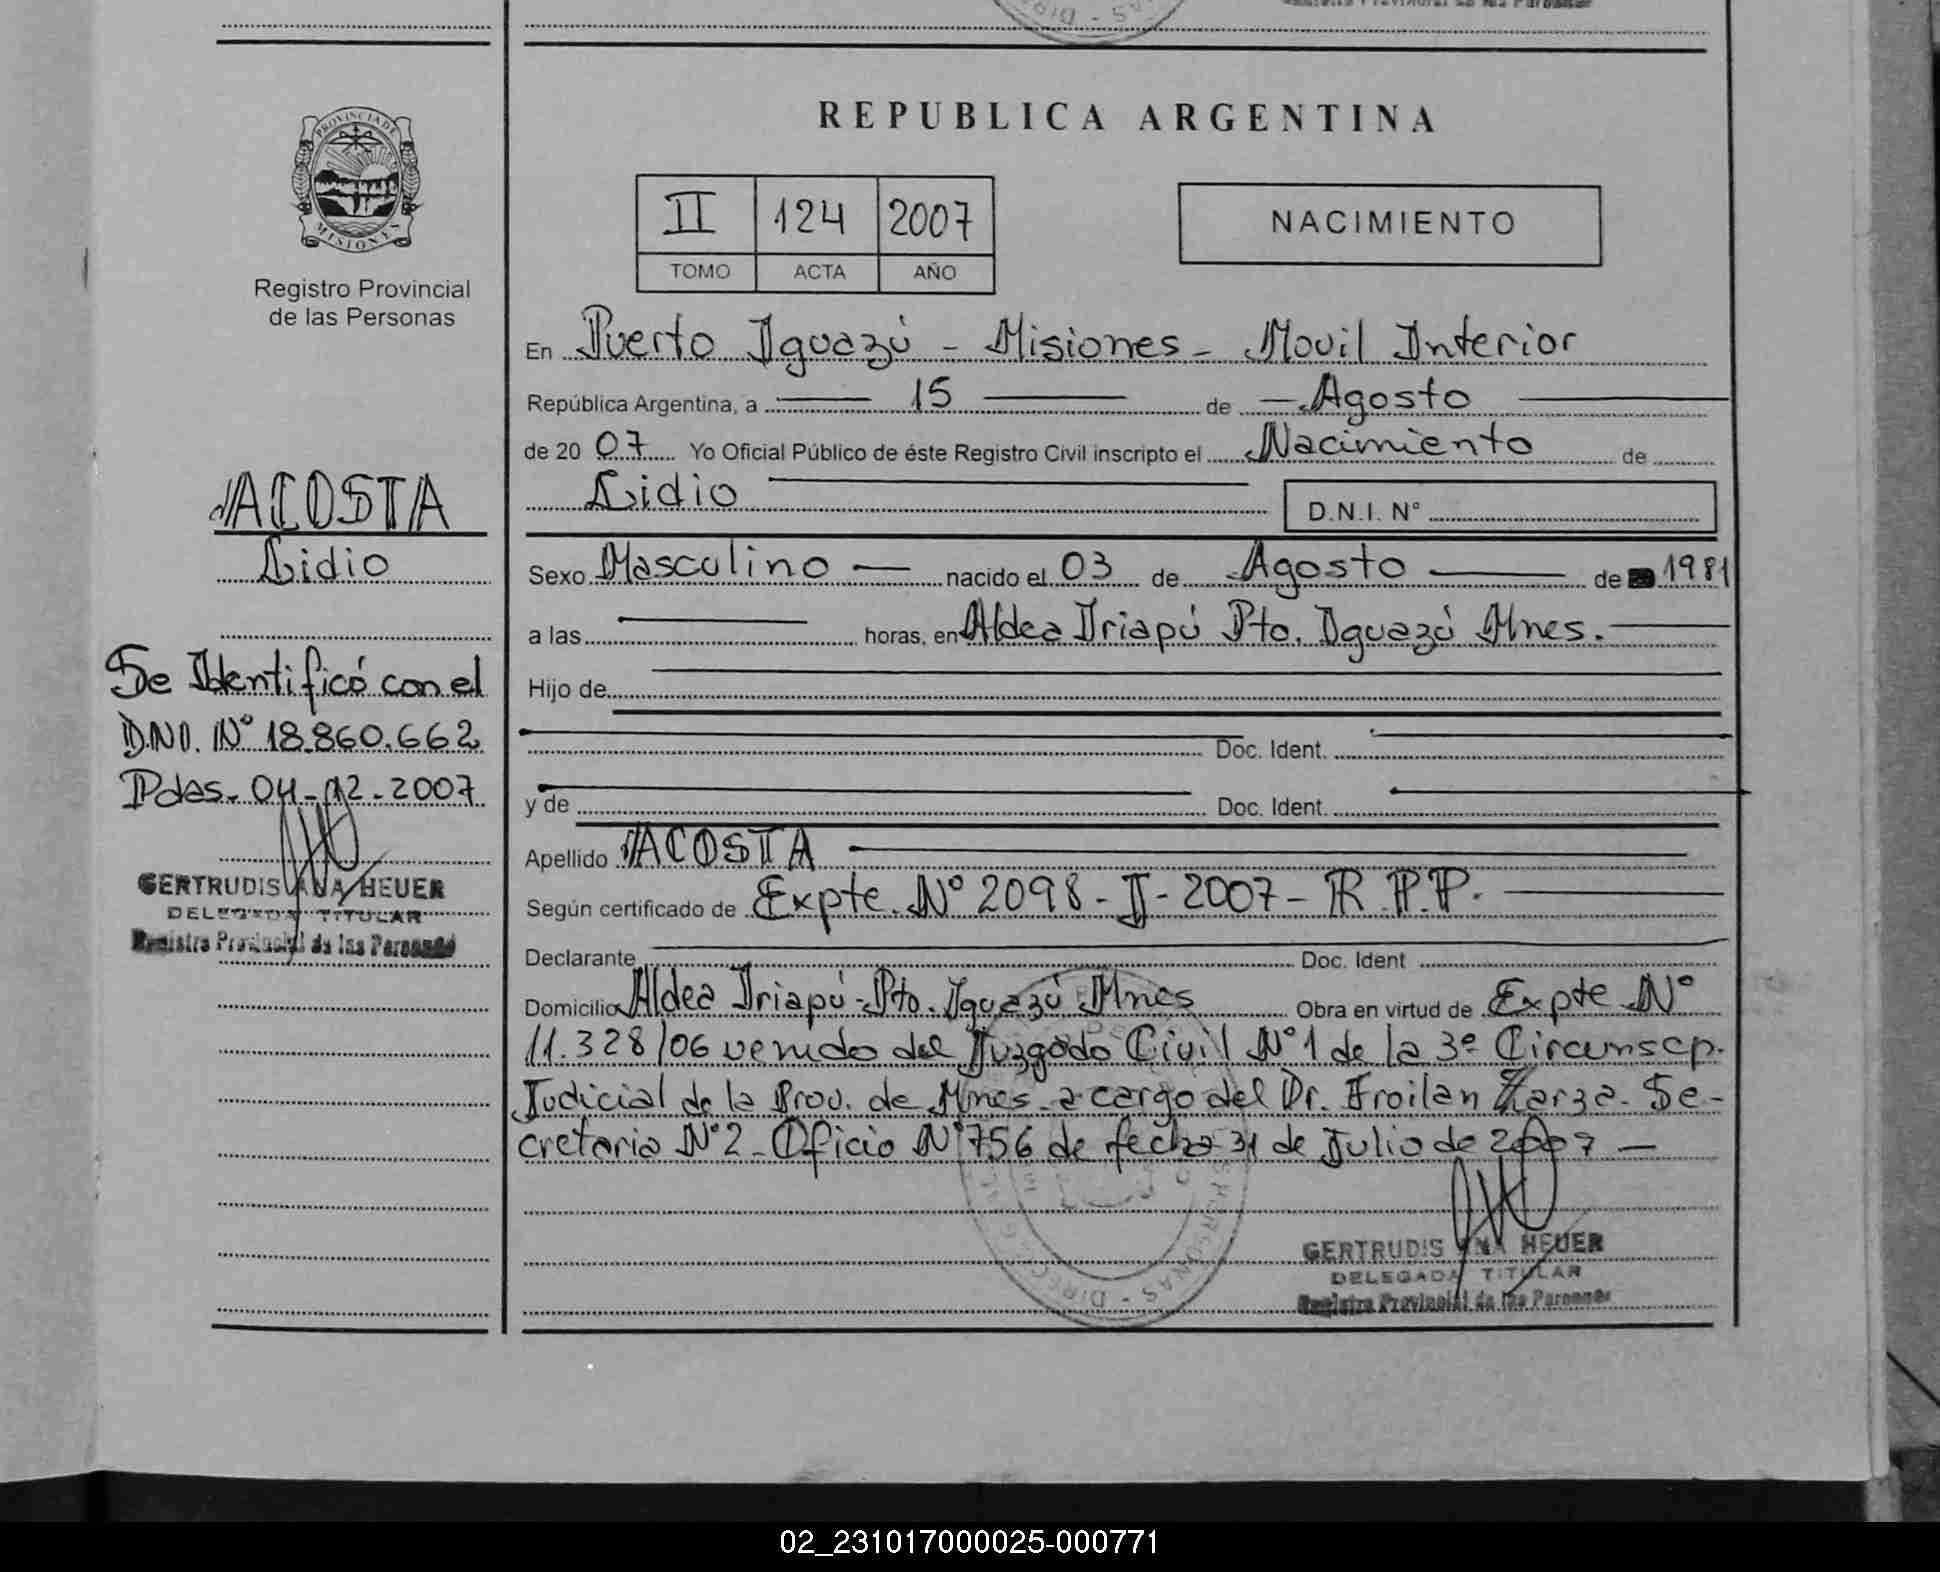 REPUBLICA ARGENTINA
PROVINCIA DE
MISIONES
Registro Provincial
de las Personas
II 124 2007
TOMO ACTA AÑO
NACIMIENTO
En Puerto Iguazú - Misiones - Movil Interior
República Argentina, a 15 de Agosto
de 20 07 Yo Oficial Público de éste Registro Civil inscripto el Nacimiento de
Lidio
D.N.I. N°
Sexo Masculino nacido el 03 de Agosto de 1981
a las horas, en Aldea Iriapú Pto. Iguazú Mnes.
Hijo de
Doc. Ident.
y de Doc. Ident.
Apellido ACOSTA
Según certificado de Expte. N° 2098 - I - 2007 - R.P.P.
Declarante Doc. Ident
Domicilio Aldea Iriapú - Pto. Iguazú Mnes Obra en virtud de Expte N°
11.328/06 venido del Juzgado Civil N° 1 de la 3° Circunscp.
Judicial de la Prov. de Mnes a cargo del Dr. Froilan Zarza. Se-
cretaria N° 2 - Oficio N° 756 de fecha 31 de Julio de 2007 -
GERTRUDIS ANA HEUER
DELEGADA TITULAR
Registro Provincial de las Personas
ACOSTA
Lidio
Se Identificó con el
D.N.I. N° 18.860.662
Pdas - 04 - 12 - 2007
GERTRUDIS ANA HEUER
DELEGADA TITULAR
Registro Provincial de las Personas
02_231017000025-000771